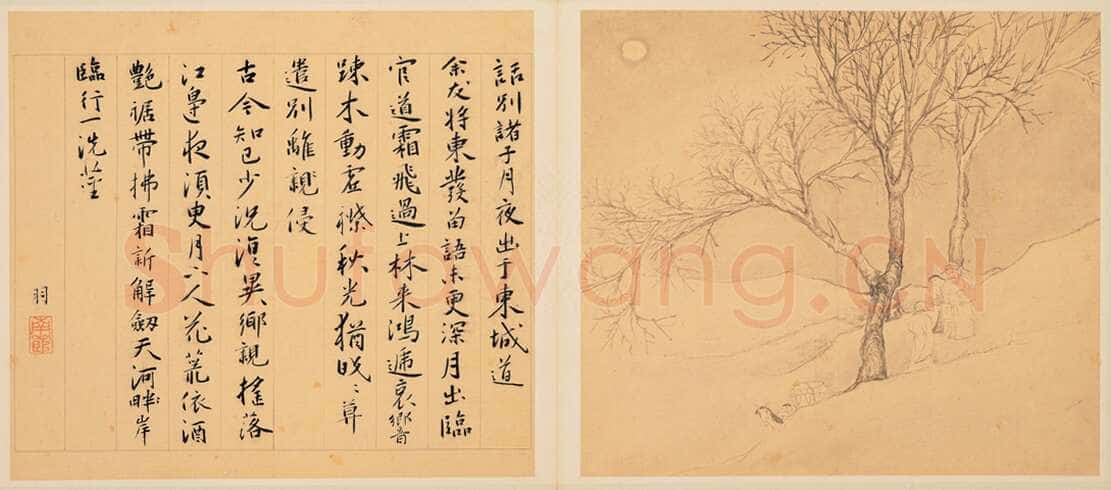 話別諸子月夜出于東城道
余友將東發留語未更深月出臨
官道霜飛過上林来鴻遞哀響
踈木動虛襟秋光猶晚〻尊
遣別離親侵
古今知己少況復異鄉親搖落
江皐夜須臾月下人花蘿依酒
艷裾帶拂霜新解劔天河畔岸
臨行一洗塵
羽
Shufawang.CN